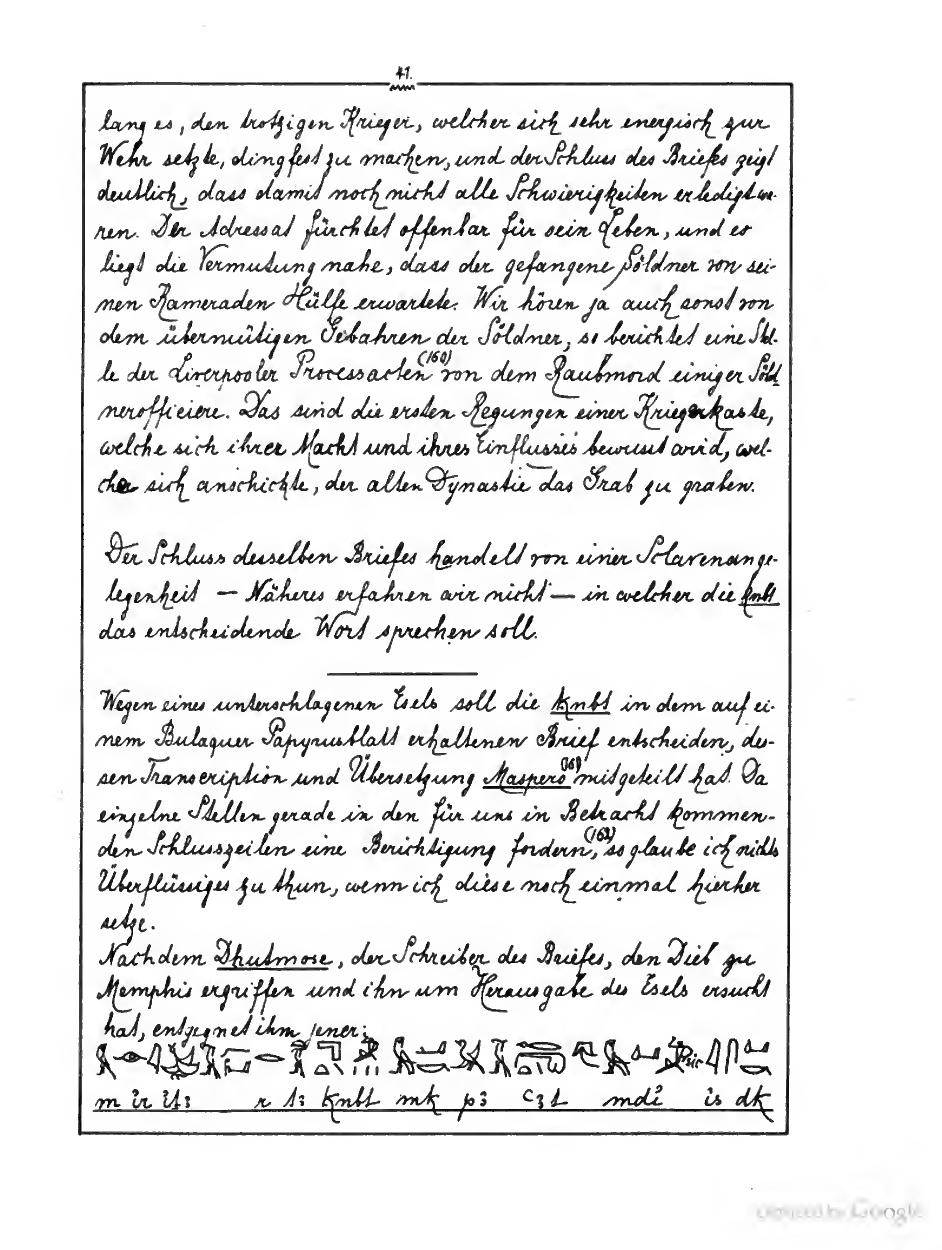 41.
lang es, den trotzigen Krieger, welcher sich sehr energisch zur
Wehr setzte, dingfest zu machen, und der Schluss des Briefes zeigt
deutlich, dass damit noch nicht alle Schwierigkeiten erledigt wa-
ren. Der Adressat fürchtet offenbar für sein Leben, und es
liegt die Vermutung nahe, dass der gefangene Söldner von sei-
nen Kameraden Hülfe erwartete. Wir hören ja auch sonst von
dem übermütigen Gebahren der Söldner, so berichtet eine Stel-
le der Liverpooler Processacten (160) von dem Raubmord einiger Söld
nerofficiere. Das sind die ersten Regungen einer Kriegerkaste,
welche sich ihrer Macht und ihres Einflusses bewusst wird, wel-
che sich anschickte, der alten Dynastie das Grab zu graben.
Der Schluss desselben Briefes handelt von einer Sclavenange-
legenheit — Näheres erfahren wir nicht — in welcher die knbt
das entscheidende Wort sprechen soll.
Wegen eines unterschlagenen Esels soll die knbt in dem auf ei-
nem Bulaquer Papyrusblatt erhaltenen Brief entscheiden, des-
sen Transcription und Übersetzung Maspero (161) mitgeteilt hat. Da
einzelne Stellen gerade in den für uns in Betracht kommen-
den Schlusszeilen eine Berichtigung fordern, (162) so glaube ich nichts
Überflüssiges zu thun, wenn ich diese noch einmal hierher
setze.
Nachdem Dhutmose, der Schreiber des Briefes, den Dieb zu
Memphis ergriffen und ihn um Herausgabe des Esels ersucht
hat, entgegnet ihm jener:
sic
m ir iṯꜣ r tꜣ knbt mk pꜣ ꜥꜣt mdỉ is dk